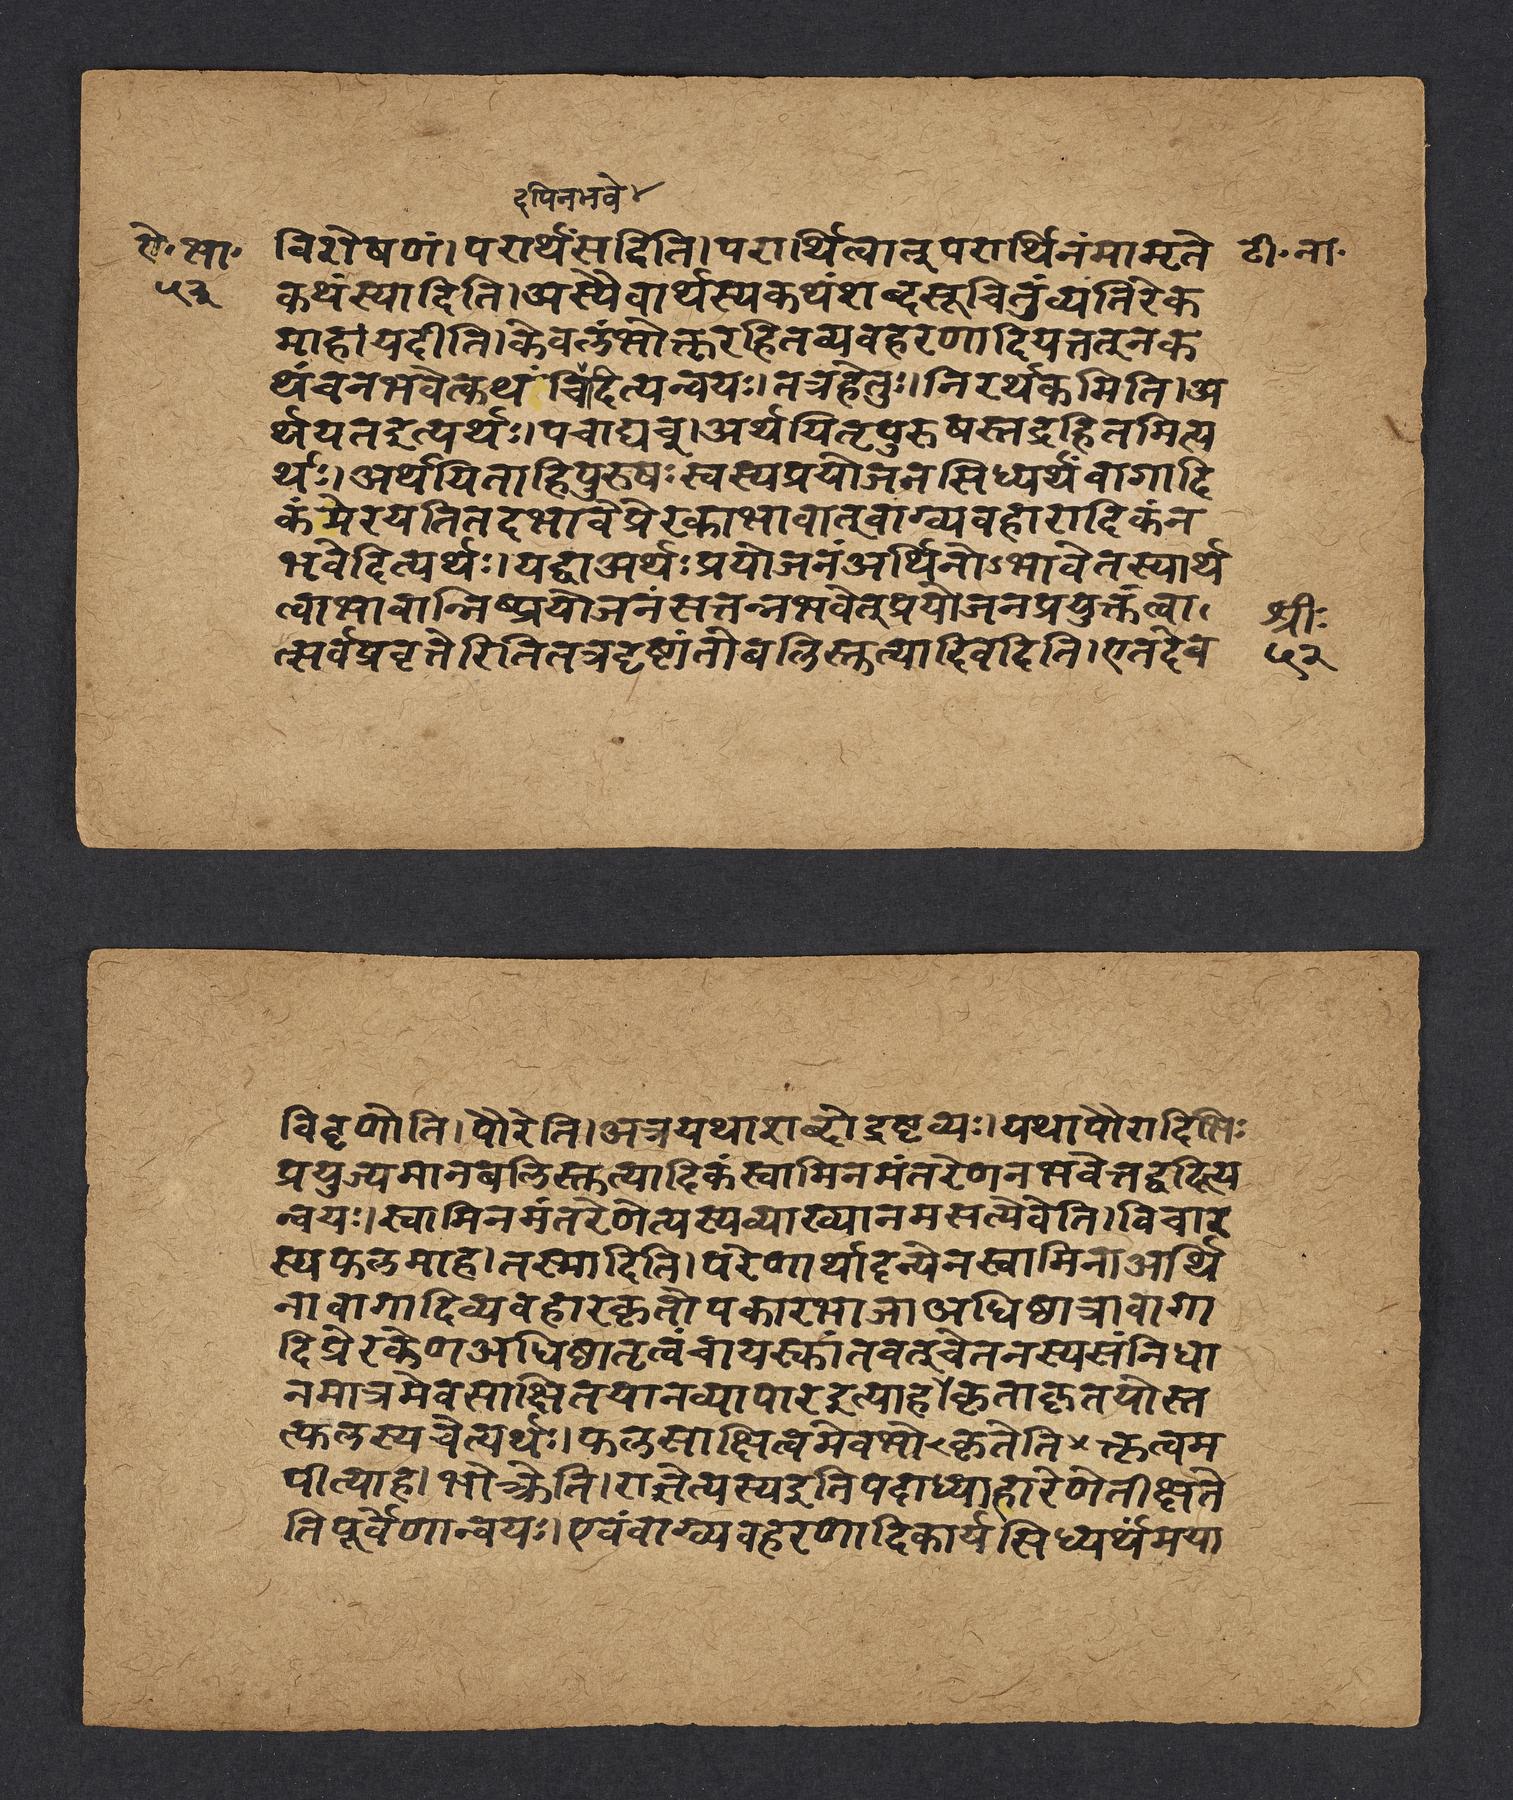 दपिनभवे४
ऐ॰भा॰ विशेषणं।परार्थंसदिति।परार्थित्वात्परार्थिनंमामृते टी॰ना॰
५२ कथंस्यादिति।अस्यैवार्थस्यकथंशब्दसूचितुंव्यतिरेक
माहायदीति।केवलंभोक्तृरहितव्यवहरणादियत्तत्नक
थंचनभवेत्कथंचिदित्यन्वयः।तत्रहेतुः।निरर्थकमिति।अ
र्थयतइत्यर्थः।पचाद्यच्।अर्थयितृपुरुषस्तद्रहितमित्य
र्थः।अर्थयिताहिपुरुषःस्वस्यप्रयोजनसिध्यर्थंवागादि
कंप्रेरयतितदभावेप्रेरकाभावात्वाग्व्यवहारादिकंन
भवेदित्यर्थः।यद्वाअर्थःप्रयोजनंअर्थिनोऽभावेतस्यार्थ
त्वाभावान्निष्प्रयोजनंसत्तन्नभवेत्प्रयोजनप्रयुक्तंत्वा श्रीः
त्सर्वप्रवृत्तेरितितत्रदृष्टांतोबलिस्तुत्यादिवदिति।एतदेव ५२
विवृणोति।पौरेति।अत्रयथाशब्दोद्रष्टव्यः।यथापौरादिभिः
प्रयुज्यमानबलिस्तुत्यादिकंस्वामिनमंतरेणनभवेत्तद्वदित्य
न्वयः।स्वामिनमंतरेणेत्यस्यव्याख्यानमसत्येवेति।विचार
स्यफलमाह।तस्मादिति।परेणार्थादन्येनस्वामिनाअर्थि
नावागादिव्यवहारकृतोपकारभाजाअधिष्ठात्रावागा
दिप्रेरकेणअधिष्ठातृत्वंचायस्कांतवत्चेतनस्यसंनिधा
नमात्रमेवसाक्षितयानव्यापारइत्याह।कृताकृतयोस्त
त्फलस्यचेत्यर्थः।फलसाक्षित्वमेवभो<कृतेति×क्तृत्वम
पीत्याह।भोक्त्रेति।राज्ञेत्यस्यइतिपदाध्याहारेणेतीक्षते
तिपूर्वेणान्वयः।एवंवाग्व्यवहरणादिकार्यसिध्यर्थंमया